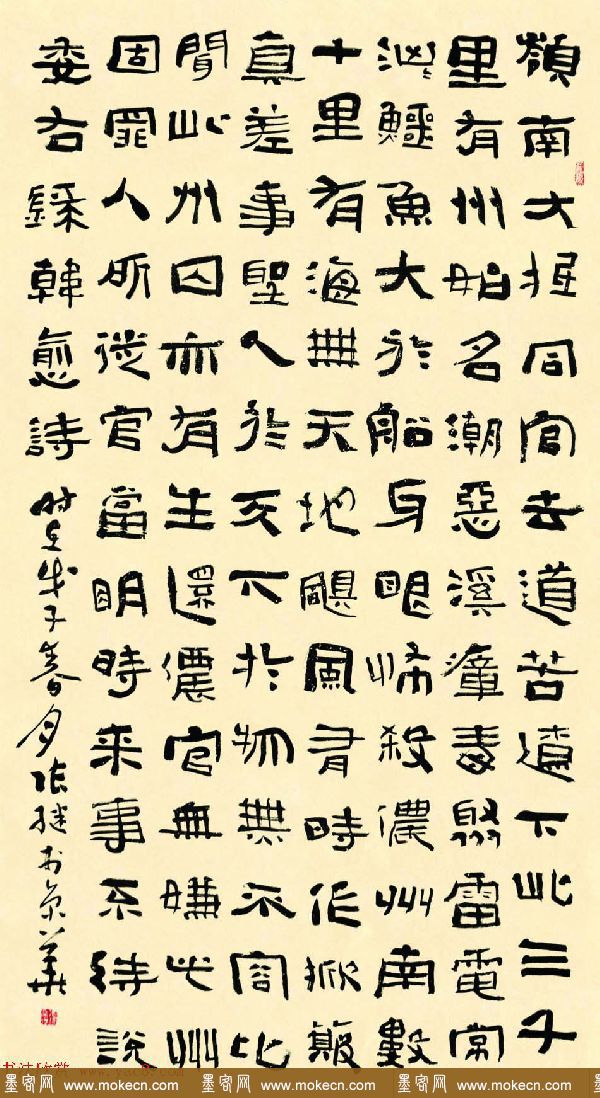 嶺南大抵同官去道苦遼下此三千
里有州始名潮惡溪瘴毒聚雷電常
洶鱷魚大於船牙眼怖殺儂州南數
十里有海無天地颶風有時作掀簸
真差事聖人於天下於物無不容比
聞此州囚亦有生還儂官無嫌此州
固罪人所徙官當明時来事不待說
委右錄韓愈詩
时在戊子春月张继于京華
墨客网 www.mokecn.com 墨客网 www.mokecn.com 墨客网 www.mokecn.com